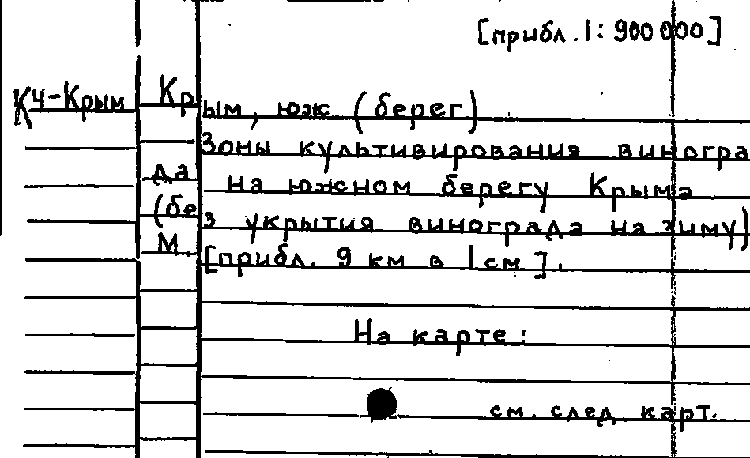 [прибл. 1: 900 000]
К4-Крым Крым, юж (берег)
Зоны культивирования виногра
да на южном берегу Крыма
(без укрытия винограда на зиму)
М. [прибл. 9 км в 1 см].
На карте:
см. след карт.